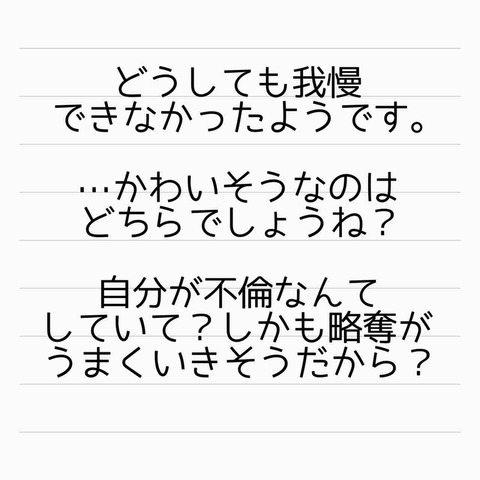 どうしても我慢
できなかったようです。
…かわいそうなのは
どちらでしょうね？
自分が不倫なんて
していて？しかも略奪が
うまくいきそうだから？